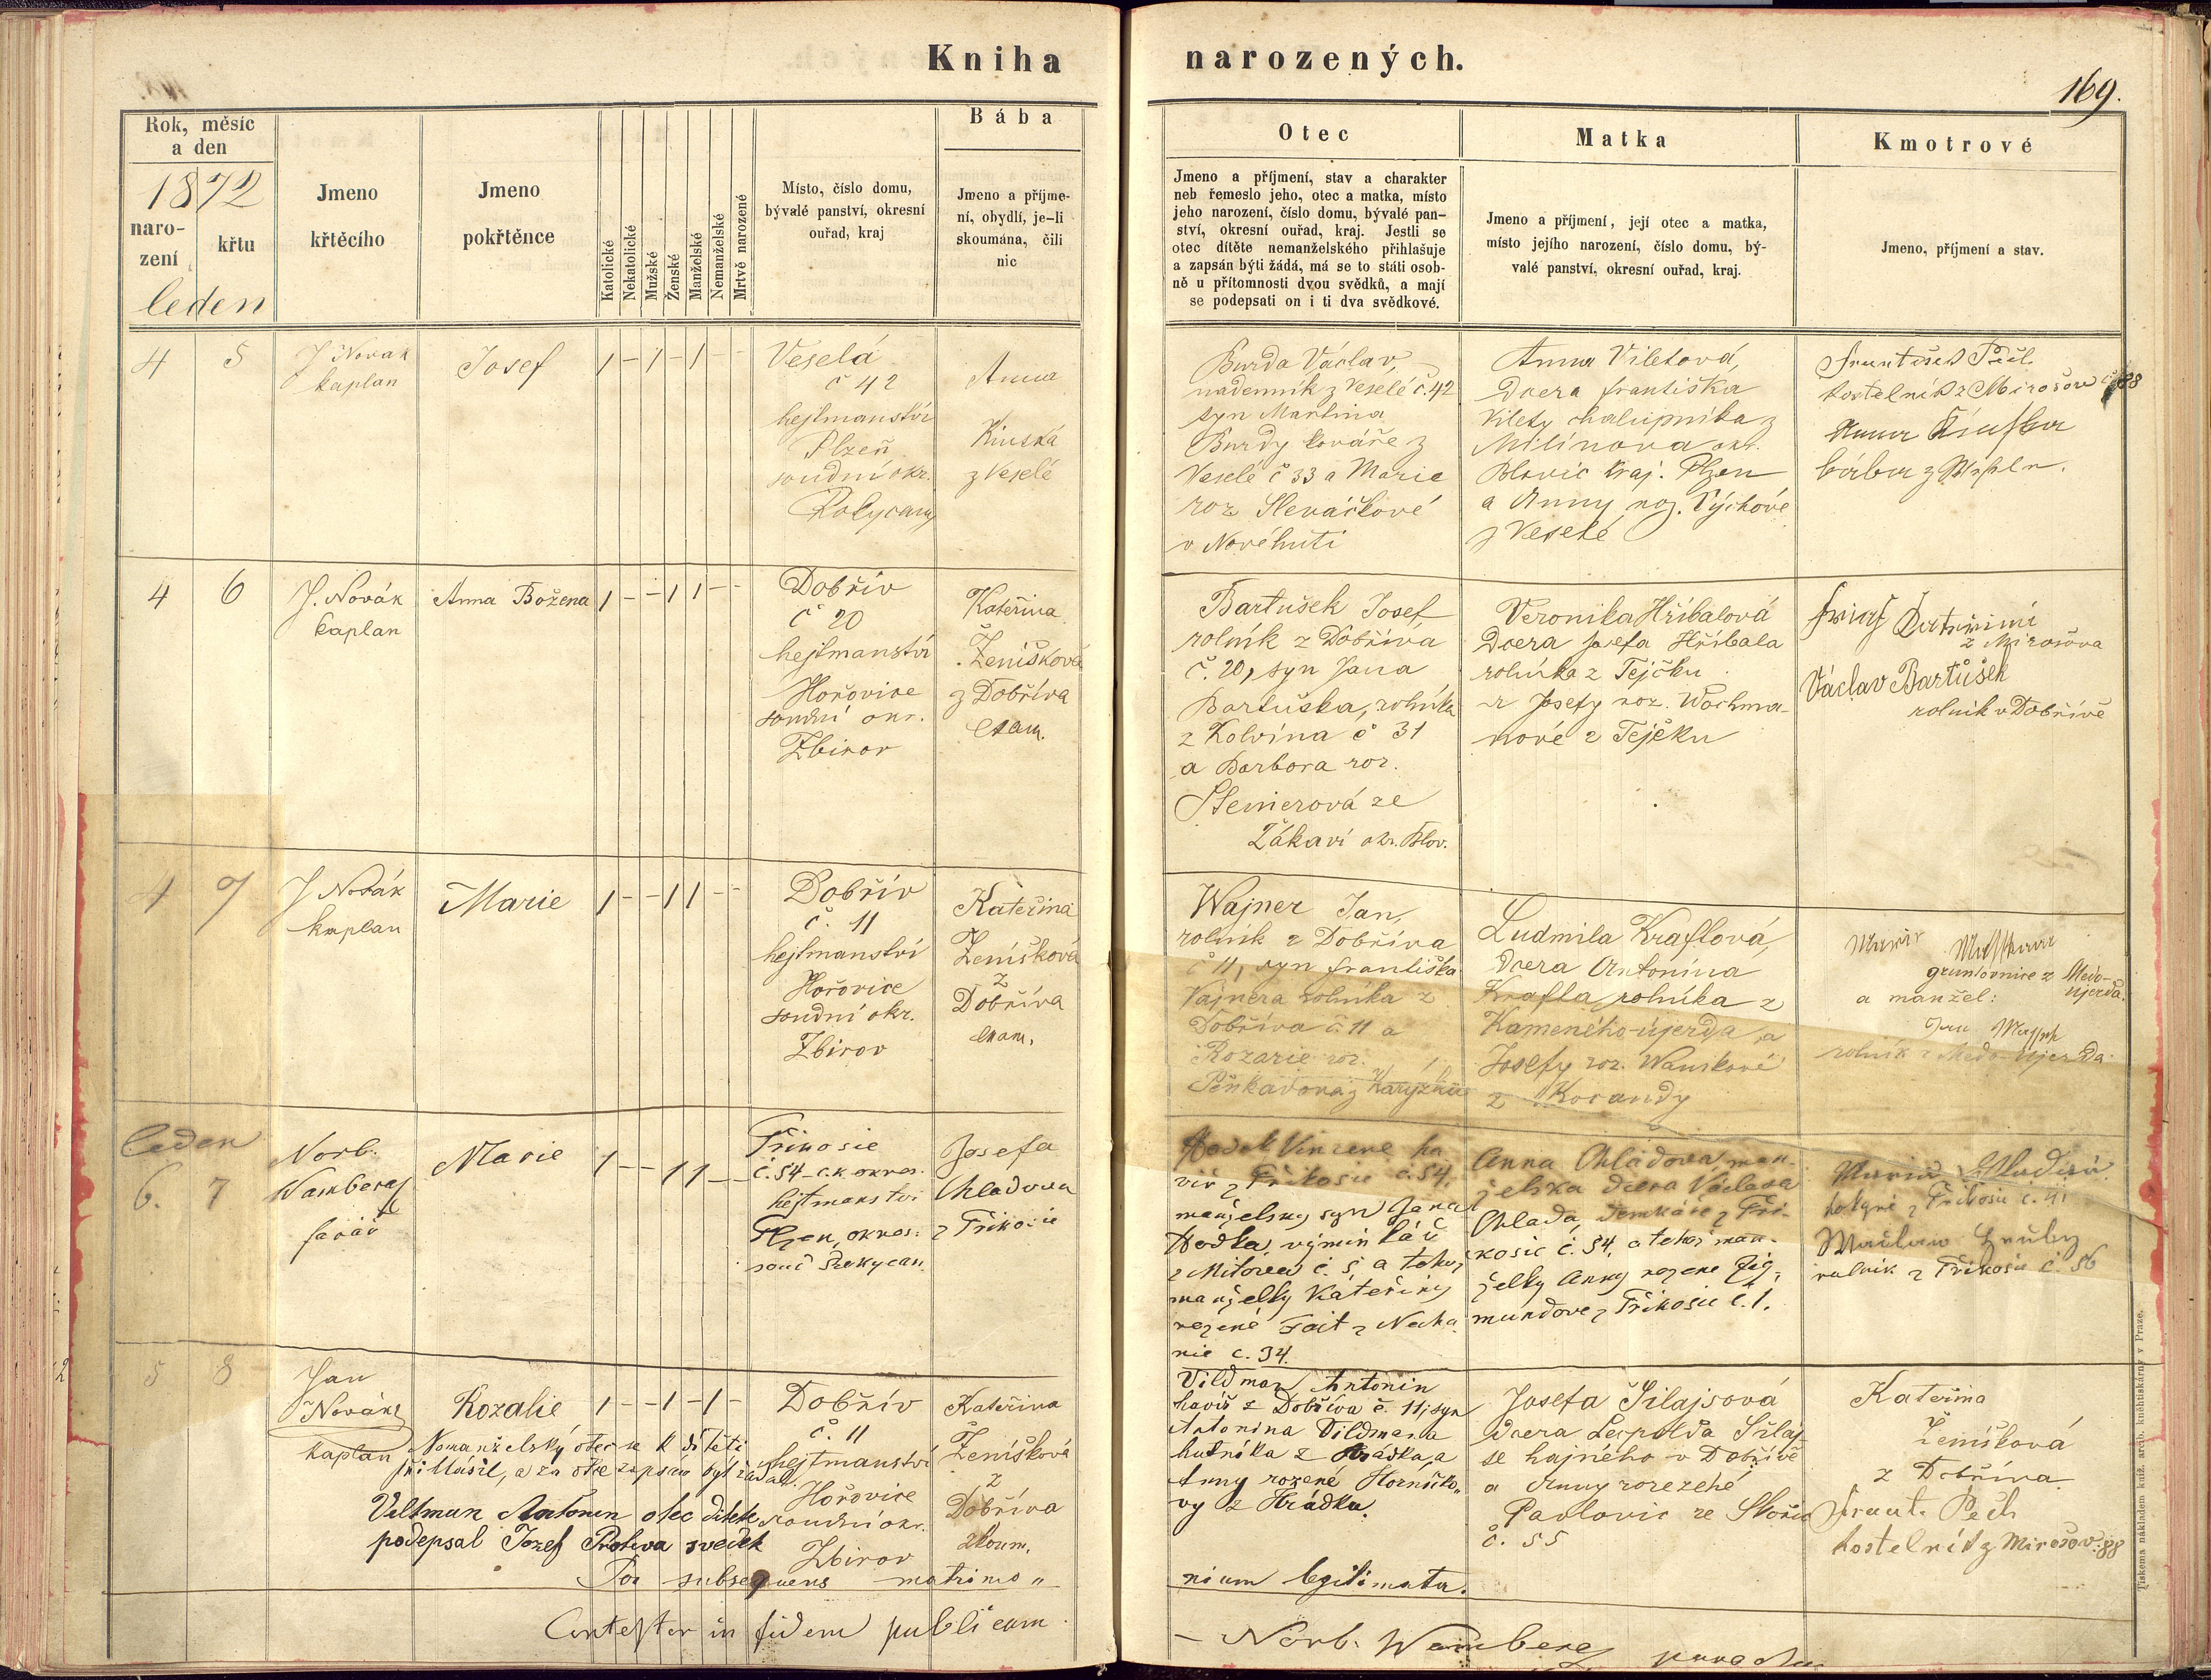 Kniha narozených.
169.
Rok, měsíc
a den
1872
naro-
zení
křtu
leden
Jmeno
křtěcího
Jmeno
pokřtěnce
Katolické
Nekatolické
Mužské
Ženské
Manželské
Nemanželské
Mrtvě narozené
Místo, číslo domu,
bývalé panství, okresní
ouřad, kraj
Bába
Jmeno a příjme-
ní, obydlí, je-li
skoumána, čili
nic
Otec
Jmeno a příjmení, stav a charakter
neb řemeslo jeho, otec a matka, místo
jeho narození, číslo domu, bývalé pan-
ství, okresní ouřad, kraj. Jestli se
otec dítěte nemanželského přihlašuje
a zapsán býti žádá, má se to státi osob-
ně u přítomnosti dvou svědků, a mají
se podepsati on i ti dva svědkové.
Matka
Jmeno a příjmení, její otec a matka,
místo jejího narození, číslo domu, bý-
valé panství, okresní ouřad, kraj.
Kmotrové
Jmeno, příjmení a stav.
4 5
J Novák
kaplan
Josef
1 - 1 - 1 - -
Veselá
č 42
hejtmanství
Plzeň
soudní okr.
Rokycany
Anna
Kinská
z Veselé
Burda Václav,
nádenník z Veselé č. 42
syn Martina
Burdy kováře z
Veselé č 33 a Marie
roz Slenáčkové
v Novéhuti
Anna Viletová,
dcera Františka
Vilety chalupníka z
Milínova okr.
Blovic kraj. Plzen
a Anny roz. Výchové
z Veselé
František Pech
kostelník z Mirošova č 88
Anna Kinska
bába z Veselé.
4 6
J. Novák
kaplan
Anna Božena
1 - - 1 1 - -
Dobřív
č 20
hejtmanství
Hořovice
soudní okr.
Zbirov
Kateřina
Ženíšková
z Dobříva
exam.
Bartušek Josef
rolník z Dobříva
č. 20, syn Jana
Bartuška, rolníka
z Kolvína č 31
a Barbora roz.
Steinerová ze
Žákaví okr. Blov.
Veronika Hříbalová
dcera Josefa Hříbala
rolníka z Tejčku
a Josefy roz. Wochma-
nové z Tejčku
z Mirošova
Václav Bartůšek
rolník v Dobřívě
4 7
J Novák
kaplan
Marie
1 - - 1 1 - -
Dobřív
č. 11
hejtmanství
Hořovice
soudní okr.
Zbirov
Kateřina
Ženíšková
z
Dobříva
exam.
Wajner Jan,
rolník z Dobříva
č 11, syn Františka
Vajnera rolníka z
Dobříva č. 11 a
Rozarie roz.
z Karýzku
Ludmila Kraftová,
dcera Antonína
Krafta, rolníka z
Kameného-újezda, a
Josefy roz. Wanikové
z Korandy
gruntovnice z Medo-
újezda.
a manžel:
Jan
rolník z Medo-Újezda
leden
6. 7
Norb.
Wamberg
farář
Marie
1 - - 1 1 - -
Příkosic
č. 54 c. k. okres.
hejtmanství
Plzen, okres.
soud Rokycan.
Josefa
Chladova
z Příkosic
Hodek Vincenc ha-
víř z Příkosic č. 54,
manželský syn Jana
Hodka, výminkáře
z Mítova č. 5 a tehož
manželky Kateřiny
rozené Fait z Necha
nic č. 34.
Anna Chladova, man-
želska dcera Václava
Chlada, domkáře z Pří-
kosic č. 54, a tehož man-
želky Anny rozene Zig-
mundove z Příkosic č. 1.
z Příkosic č. 41
rolník z Příkosic č. 56
5 8
Jan
Novák
kaplan
Rozalie
1 - - 1 - 1 -
Nemanželský otec se k dítěti
přihlásil, a za otce zapsán být žádal.
Veltman Antonin otec ditete
podepsal Jozef Protiva svedek
Dobřív
č. 11
hejtmanství
Hořovice
soudní okr.
Zbirov
Kateřina
Ženíšková
z
Dobříva
zkoum.
Vildman Antonin
havíř z Dobříva č. 11, syn
Antonina Vildmana
hutníka z Hrádka, a
Anny rozené Horničko-
vy z Hrádku.
Josefa Šilajsová
dcera Leopolda Šilaj-
se hajného v Dobřívě
a Anny rozezené
Pavlovic ze Skořic
č. 55
Kateřina
Ženíšková
z Dobříva
Frant. Pech
kostelník z Mirošov. 88
Per subsequens matrimo„
nium legitimata.
Contestor in fidem publicam.
- Norb. Wamberg